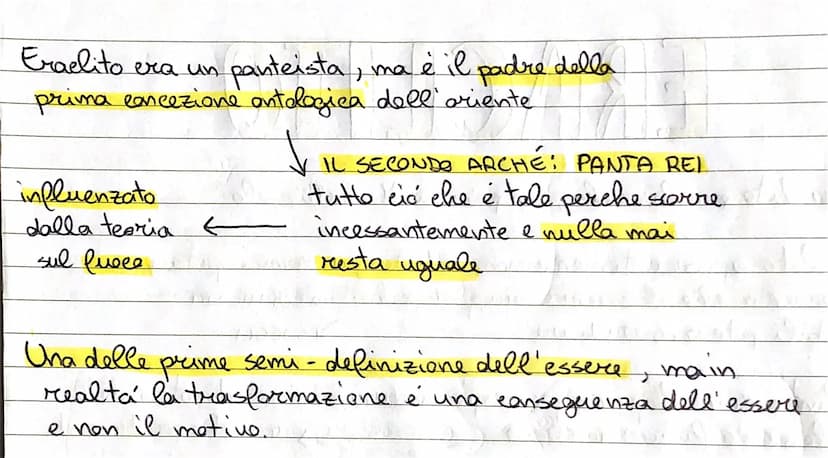 Eraclito era un panteista, ma è il padre della
prima concezione ontologica dell'oriente
IL SECONDO ARCHÉ: PANTA REI
tutto ció che é tale perche scorre
incessantemente e nulla mai
resta uguale
influenzato
dalla teoria
sul fuoco
Una delle prime semi-definizione dell'essere, main
realtá la trasformazione é una conseguenza dell'essere
e non il motivo.